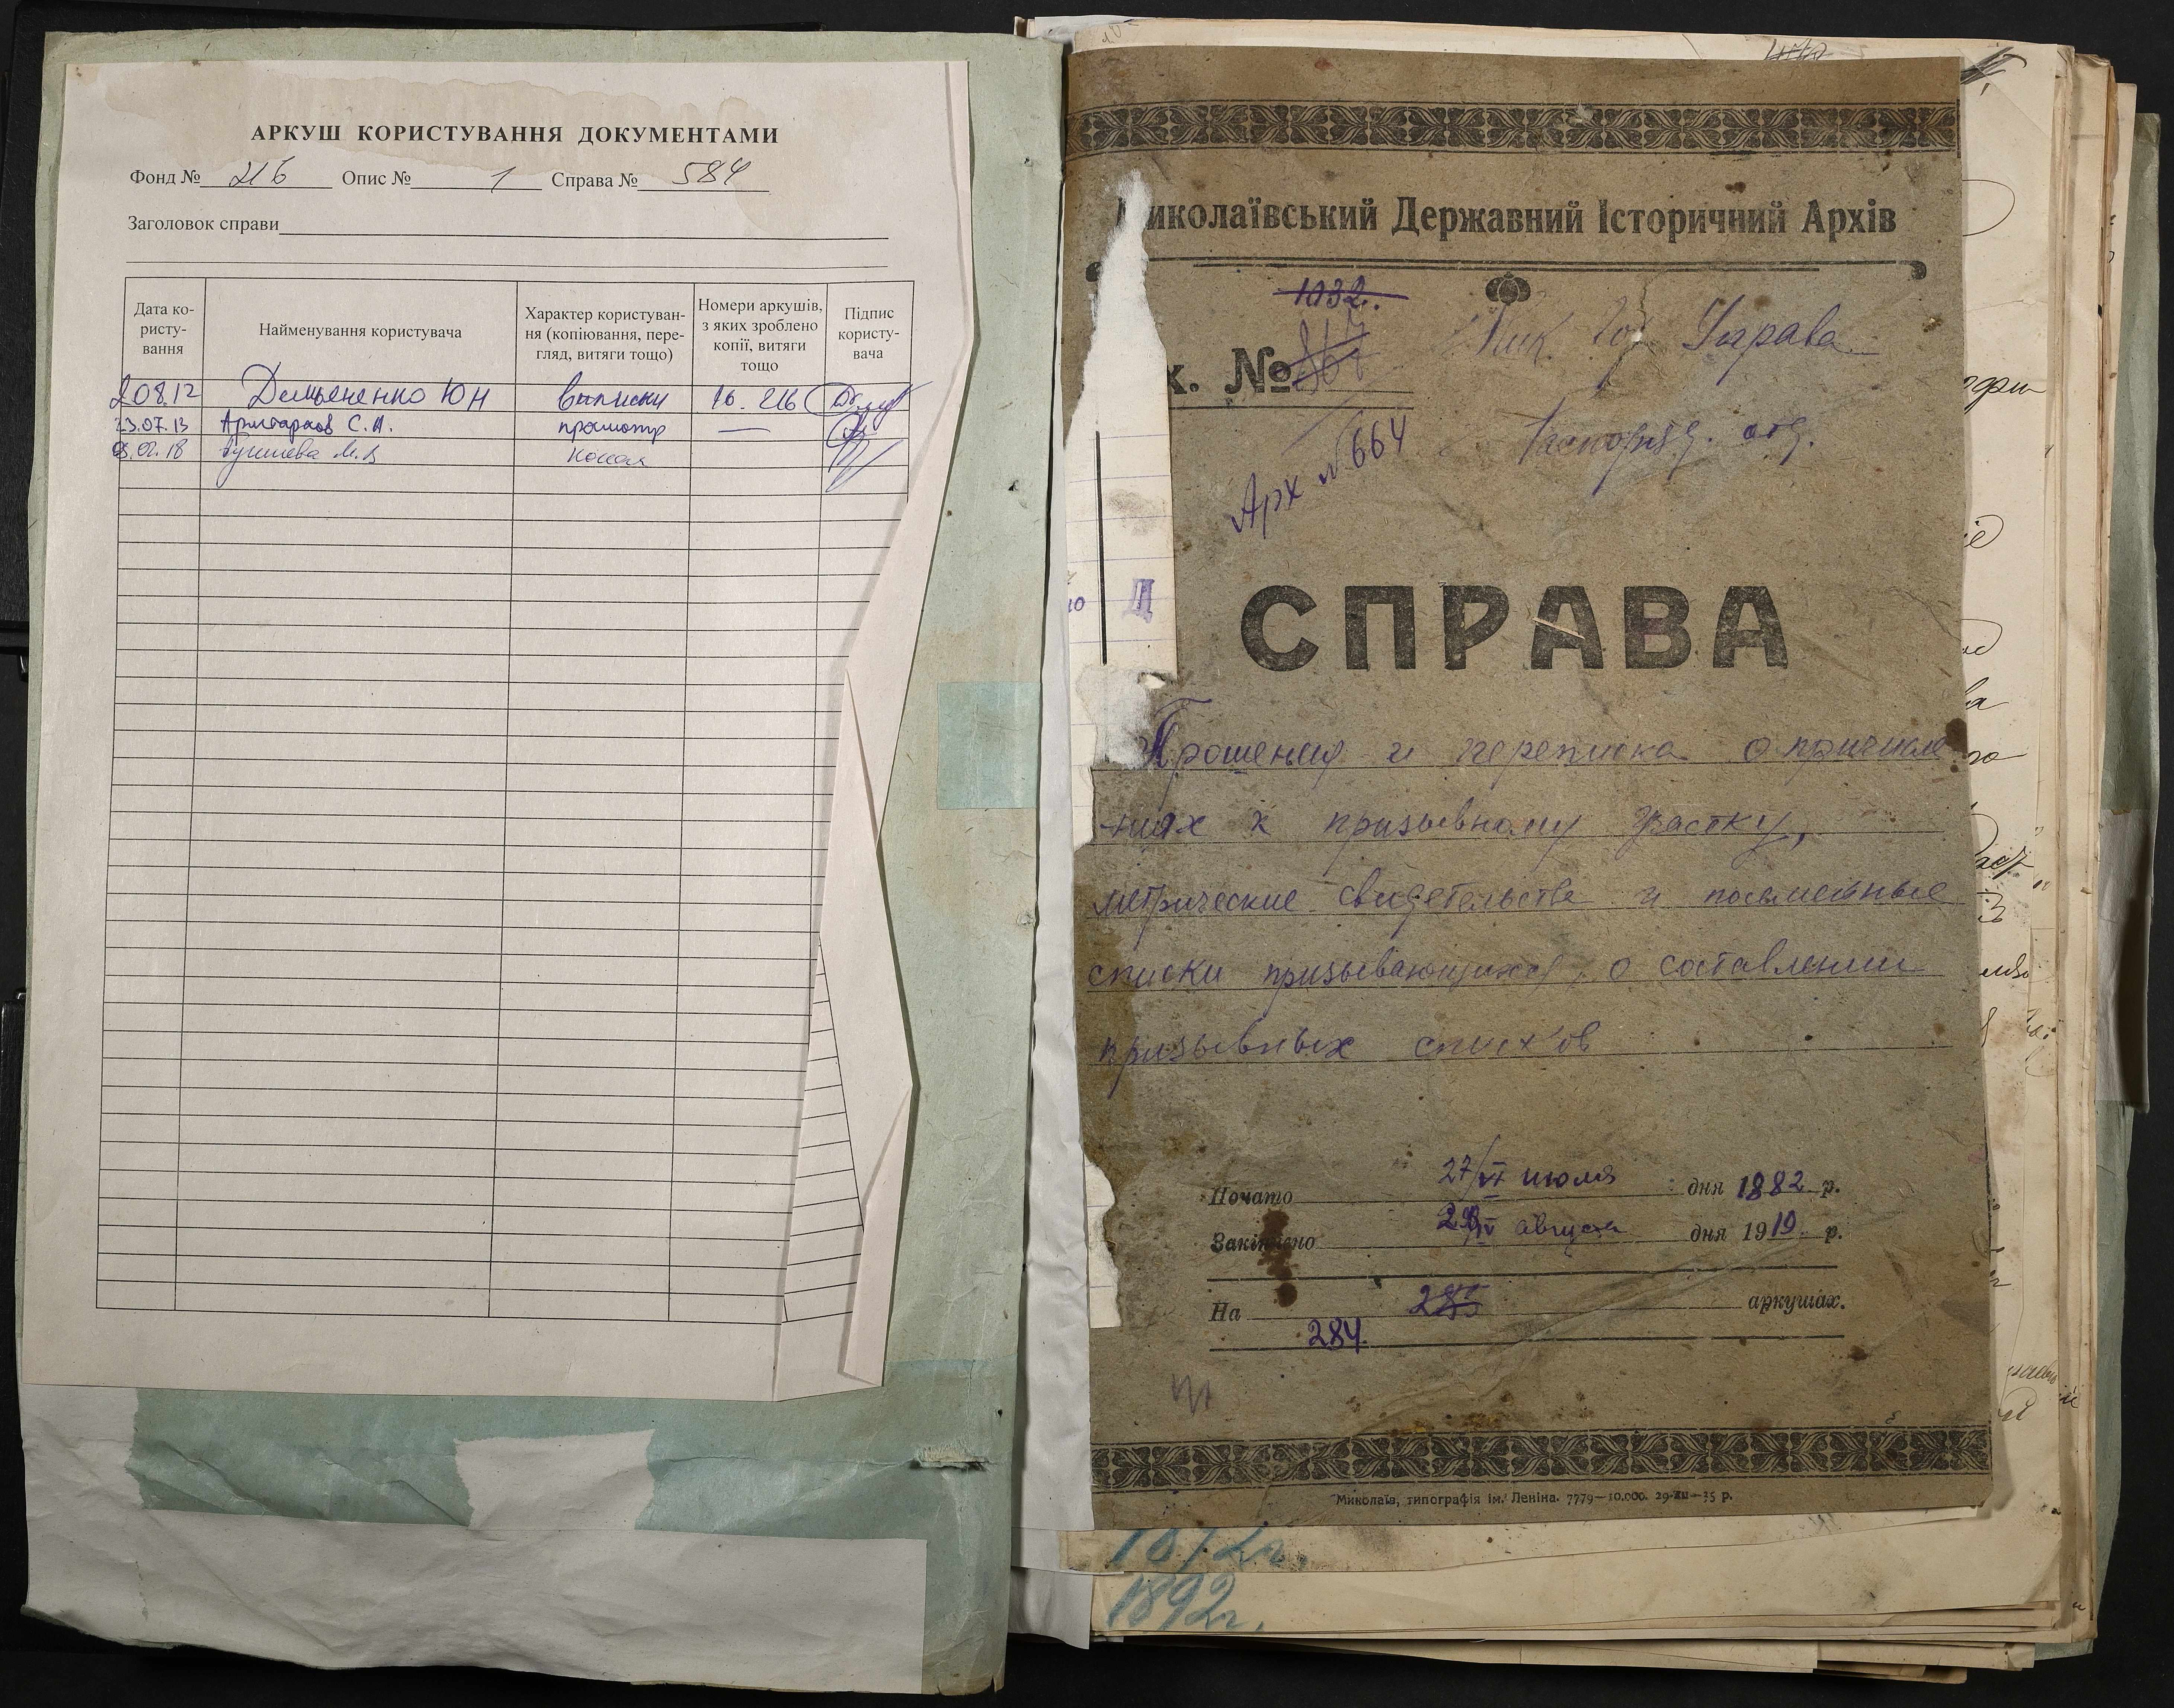 АРКУШ КОРИСТУВАННЯ ДОКУМЕНТАМИ
Фонд № 216 Опис № 1 Справа № 584
Заголовок справи
Дата ко-
ристу-
вання
Найменування користувача
Характер користуван-
ня (копіювання, пере-
гляд, витяги тощо)
Номери аркушів,
з яких зроблено
копії, витяги
тощо
Підпис
користу-
вача
208.12 Юн выписки 16. 216
23.07.13 С. А. просмотр —
18 копия
Миколаївський Державний Історичний Архів
1032.
х. № 867
Ник. Гор Управа
Арх № 664
СПРАВА
Прошения и переписка о причисле
-ниях к призывному участку,
метрические свидетельства и посемейные
списки призывающихся, о составлении
призывных списков
Почато 27/VI июля дня 1882 р.
Закінчено августа дня 1919 р.
На 285 аркушах.
284.
Миколаїв, типографія ім. Леніна. 7779—10.000. 29-XII—35 р.
1872г.
1892г.